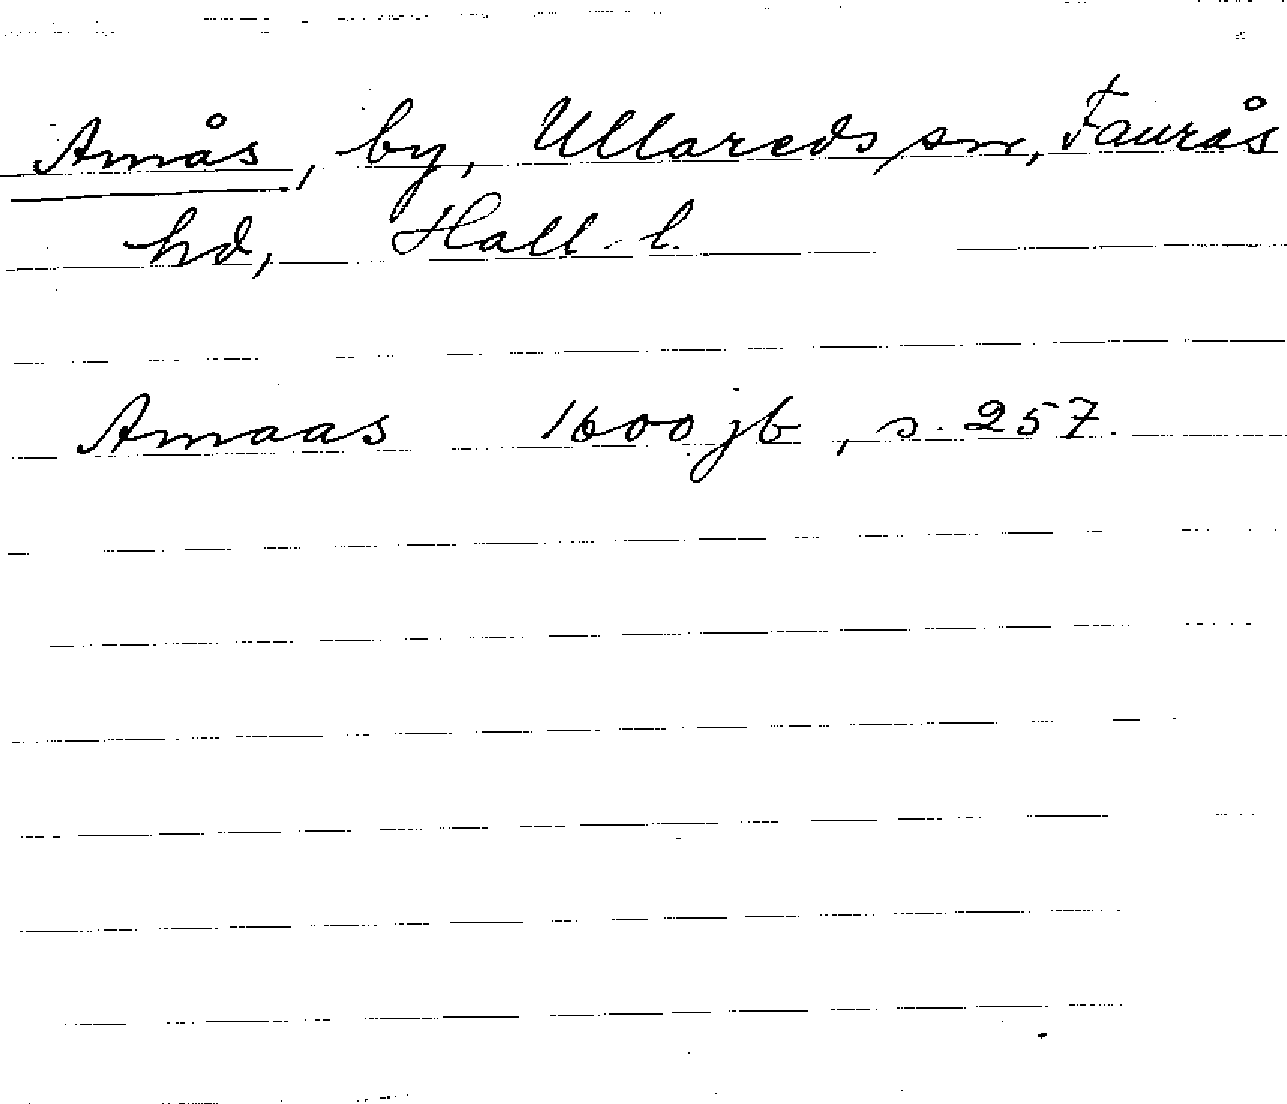 Amås, by, Ullareds sn, Faurås
hd, Hall. l.
Amaas 1600 jb, s. 257.